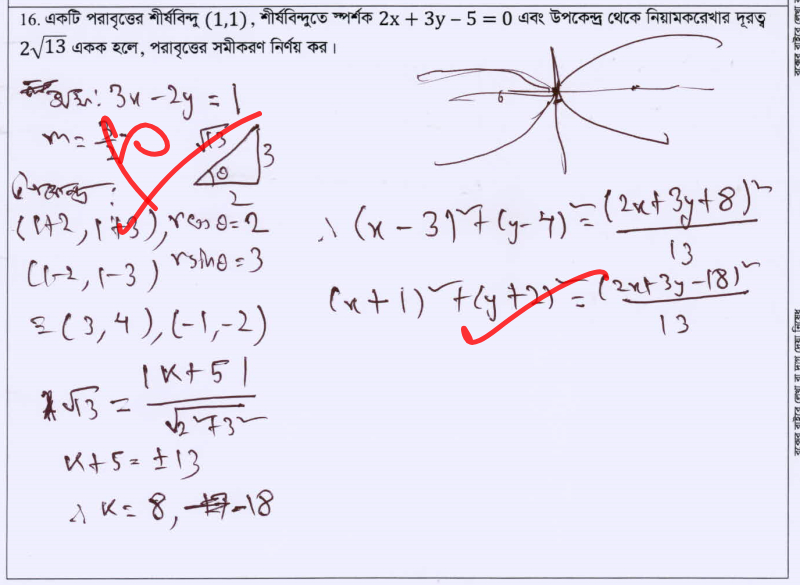 16. একটি পরাবৃত্তের শীর্ষবিন্দু (1,1), শীর্ষবিন্দুতে স্পর্শক 2x + 3y − 5 = 0 এবং উপকেন্দ্র থেকে নিয়ামকরেখার দূরত্ব
2√13 একক হলে, পরাবৃত্তের সমীকরণ নির্ণয় কর।
অক্ষ: 3x − 2y = 1
m = 3/2
√13 θ 3 2
উপকেন্দ্র:
(1+2, 1+3), r cosθ = 2
(1−2, 1−3) r sinθ = 3
≡ (3, 4), (−1, −2)
√13 = |k+5| / √(2²+3²)
k+5 = ±13
∴ k = 8, −18
∴ (x − 3)² + (y − 4)² = (2x+3y+8)² / 13
(x + 1)² + (y + 2)² = (2x+3y−18)² / 13